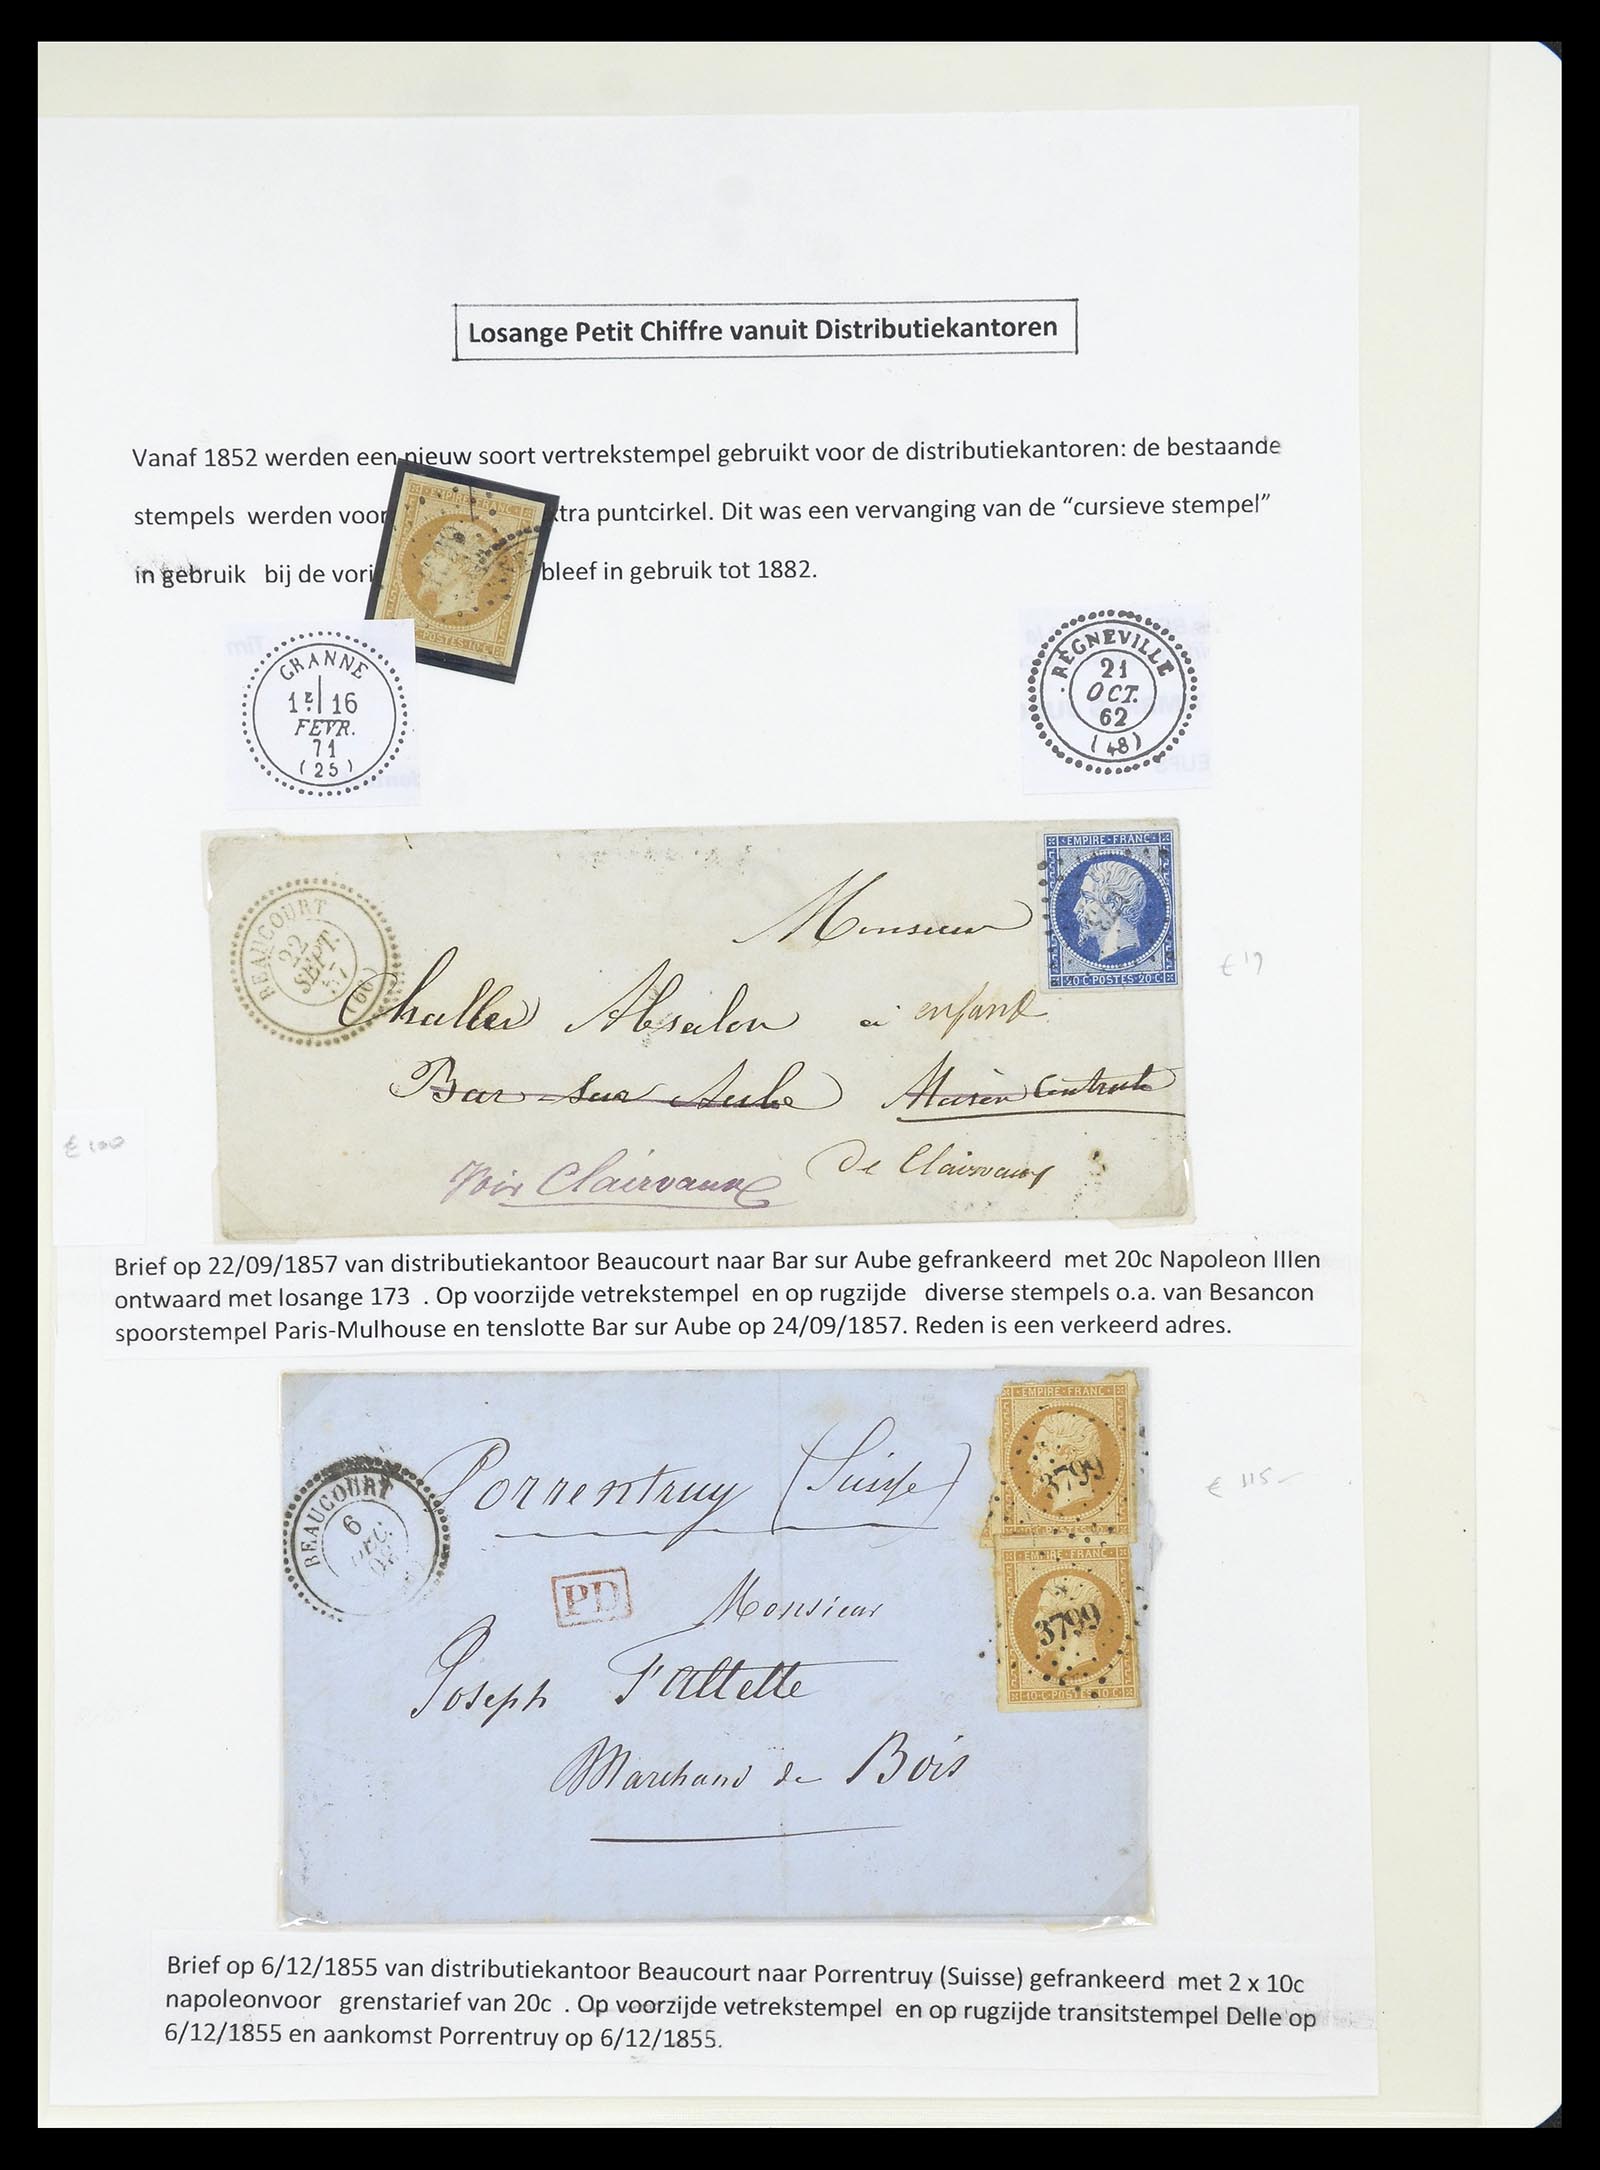 Losange Petit Chiffre vanuit Distributiekantoren
Vanaf 1852 werden een nieuw soort vertrekstempel gebruikt voor de distributiekantoren: de bestaande
stempels werden voor xtra puntcirkel. Dit was een vervanging van de “cursieve stempel”
in gebruik bij de vori bleef in gebruik tot 1882.
EMPIRE FRANC
POSTES 10 C
GRANNE
1E 16
FEVR.
71
(25)
REGNEVILLE
21
OCT.
62
(48)
EMPIRE FRANC
20 C POSTES 20 C
BEAUCOURT
22
SEPT.
57
(66)
Monsieur
Challer Absalon à enfant
Bar sur Aube Maison Centrale
Voir Clairvaux De Clairvaux
€ 19
€ 100
Brief op 22/09/1857 van distributiekantoor Beaucourt naar Bar sur Aube gefrankeerd met 20c Napoleon IIIen
ontwaard met losange 173 . Op voorzijde vetrekstempel en op rugzijde diverse stempels o.a. van Besancon
spoorstempel Paris-Mulhouse en tenslotte Bar sur Aube op 24/09/1857. Reden is een verkeerd adres.
EMPIRE FRANC
3799
EMPIRE FRANC
3799
10 C POSTES 10 C
BEAUCOURT
6
DEC.
Porrentruy (Suisse)
PD
Monsieur
Joseph
Marchand de Bois
€ 115-
Brief op 6/12/1855 van distributiekantoor Beaucourt naar Porrentruy (Suisse) gefrankeerd met 2 x 10c
napoleonvoor grenstarief van 20c . Op voorzijde vetrekstempel en op rugzijde transitstempel Delle op
6/12/1855 en aankomst Porrentruy op 6/12/1855.